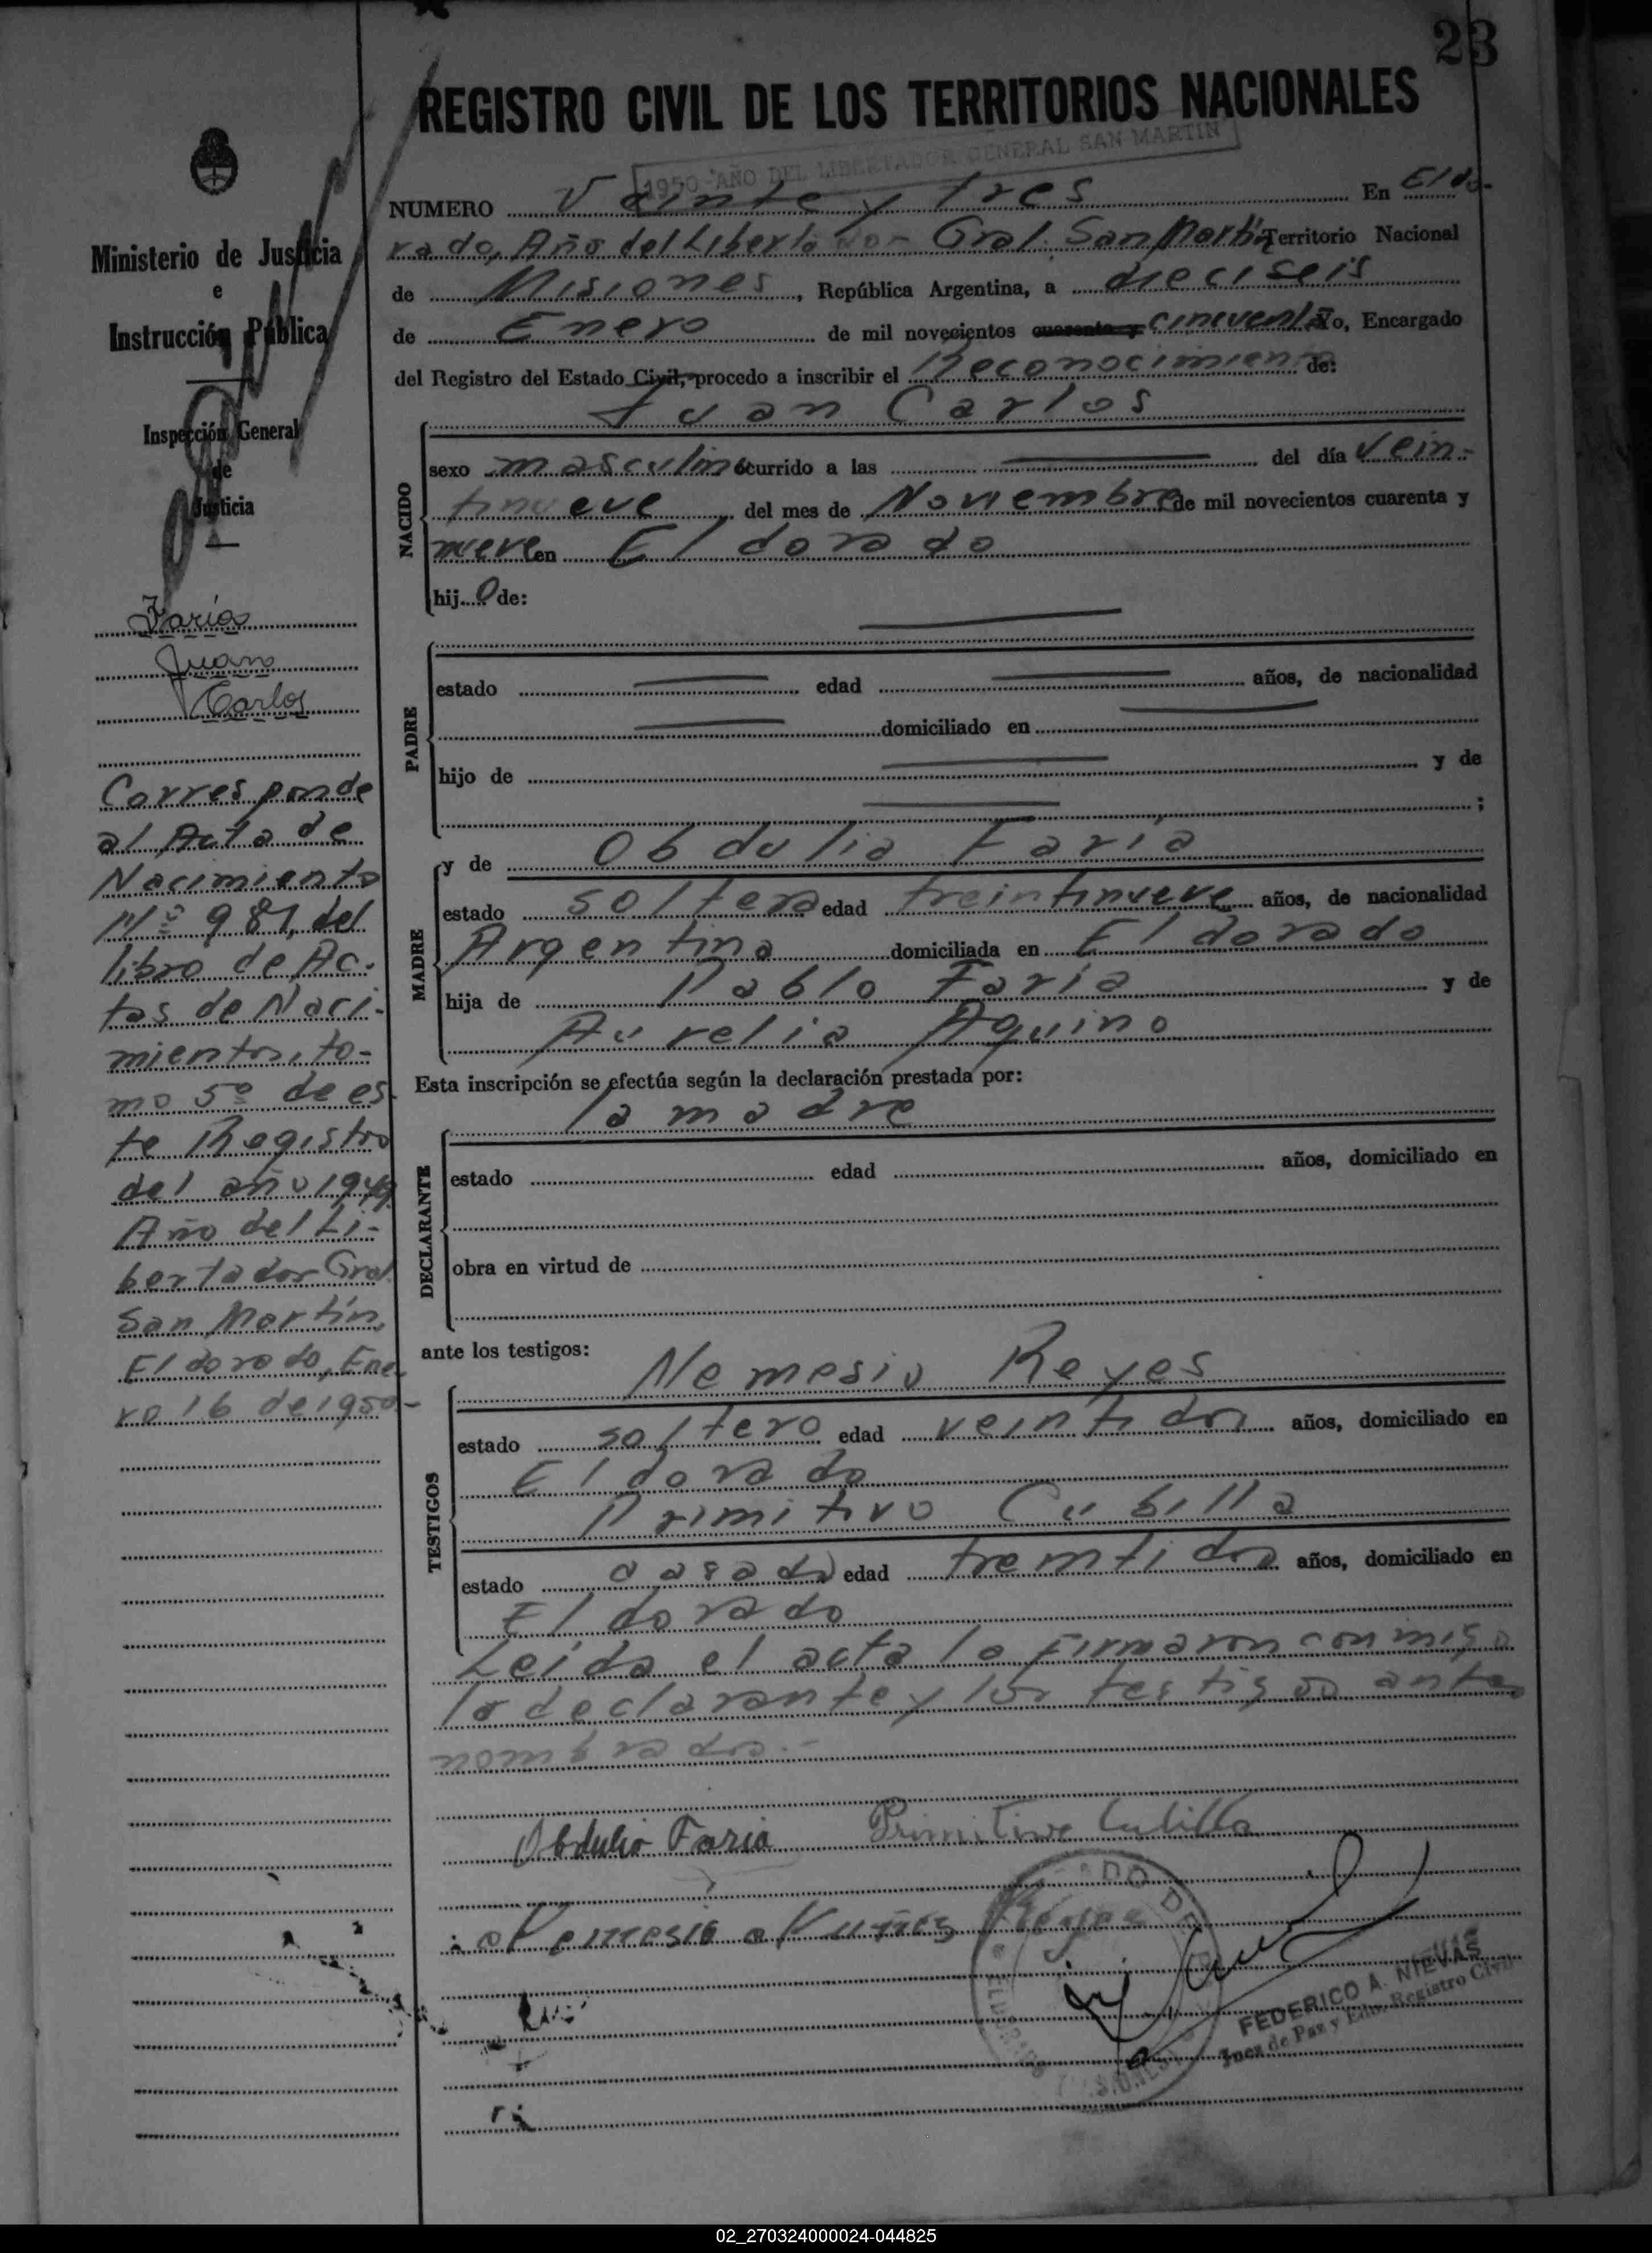 23
REGISTRO CIVIL DE LOS TERRITORIOS NACIONALES
1950 - AÑO DEL LIBERTADOR GENERAL SAN MARTIN
NUMERO Veinte y tres En Eldo-
rado, Año del Libertador Gral. San Martín Territorio Nacional
de Misiones, República Argentina, a dieciseis
de Enero de mil novecientos cuarenta y cincuenta Yo, Encargado
del Registro del Estado Civil, procedo a inscribir el Reconocimiento de:
Juan Carlos
NACIDO
sexo masculino ocurrido a las del día vein-
tinueve del mes de Noviembre de mil novecientos cuarenta y
nueve en Eldorado
hijo de:
PADRE
estado edad años, de nacionalidad
domiciliado en
hijo de y de
;
MADRE
y de Obdulia Faría
estado soltera edad treintinueve años, de nacionalidad
Argentina domiciliada en Eldorado
hija de Pablo Faría y de
Aurelia Aquino
Esta inscripción se efectúa según la declaración prestada por:
la madre
DECLARANTE
estado edad años, domiciliado en
obra en virtud de
ante los testigos:
Nemesio Reyes
TESTIGOS
estado soltero edad veintidos años, domiciliado en
Eldorado
Primitivo Cubilla
estado casado edad treintidos años, domiciliado en
Eldorado
Leída el acta la firmaron conmigo
la declarante y los testigos ante
nombrados.-
Obdulia Faria Primitivo Cubilla
Nemesio Reyes
FEDERICO A. NIEVAS
Juez de Paz y Edo. Registro Civil
Ministerio de Justicia
e
Instrucción Pública
Inspección General
de
Justicia
Faría
Juan
Carlos
Corresponde
al Acta de
Nacimiento
Nº 981, del
libro de Ac-
tas de Naci-
mientos, to-
mo 5º de es-
te Registro
del año 1949.
Año del Li-
bertador Gral.
San Martín,
Eldorado, Ene-
ro 16 de 1950.-
02_270324000024-044825